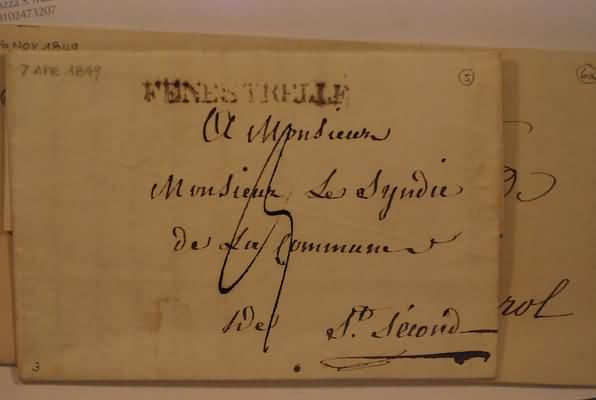 0102473207
NOV 1849
7 APR 1849
5
FENESTRELLE
A Monsieur
Monsieur Le Syndic
de La Commune
De St. Sécond
rol
3